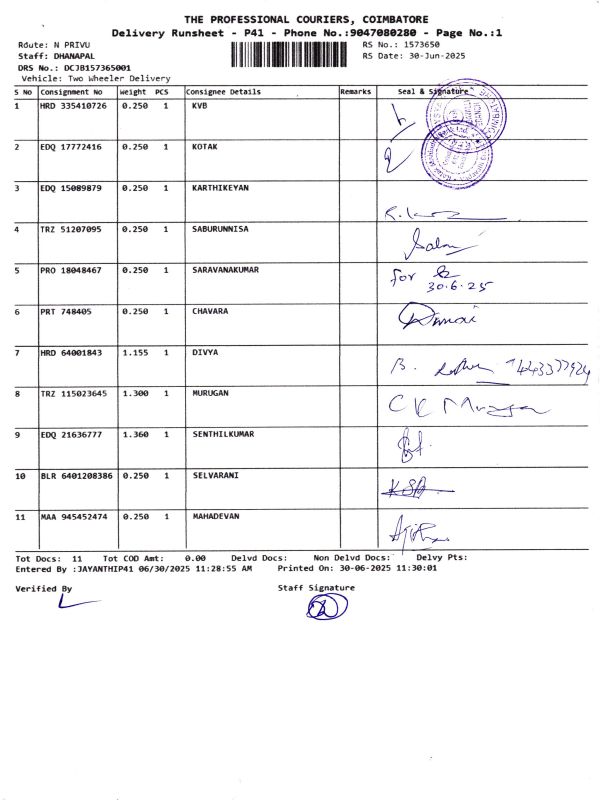 THE PROFESSIONAL COURIERS, COIMBATORE
Delivery Runsheet - P41 - Phone No.:9047080280 - Page No.:1
Route: N PRIVU RS No.: 1573650
Staff: DHANAPAL RS Date: 30-Jun-2025
DRS No.: DCJB157365001
Vehicle: Two Wheeler Delivery
S No Consignment No Weight PCS Consignee Details Remarks Seal & Signature
1 HRD 335410726 0.250 1 KVB
2 EDQ 17772416 0.250 1 KOTAK
3 EDQ 15089879 0.250 1 KARTHIKEYAN
4 TRZ 51207095 0.250 1 SABURUNNISA
5 PRO 18048467 0.250 1 SARAVANAKUMAR for
30.6.25
6 PRT 748405 0.250 1 CHAVARA
7 HRD 64001843 1.155 1 DIVYA B.
8 TRZ 115023645 1.300 1 MURUGAN CK Murugan
9 EDQ 21636777 1.360 1 SENTHILKUMAR
10 BLR 6401208386 0.250 1 SELVARANI
11 MAA 945452474 0.250 1 MAHADEVAN
Tot Docs: 11 Tot COD Amt: 0.00 Delvd Docs: Non Delvd Docs: Delvy Pts:
Entered By :JAYANTHIP41 06/30/2025 11:28:55 AM Printed On: 30-06-2025 11:30:01
Verified By Staff Signature